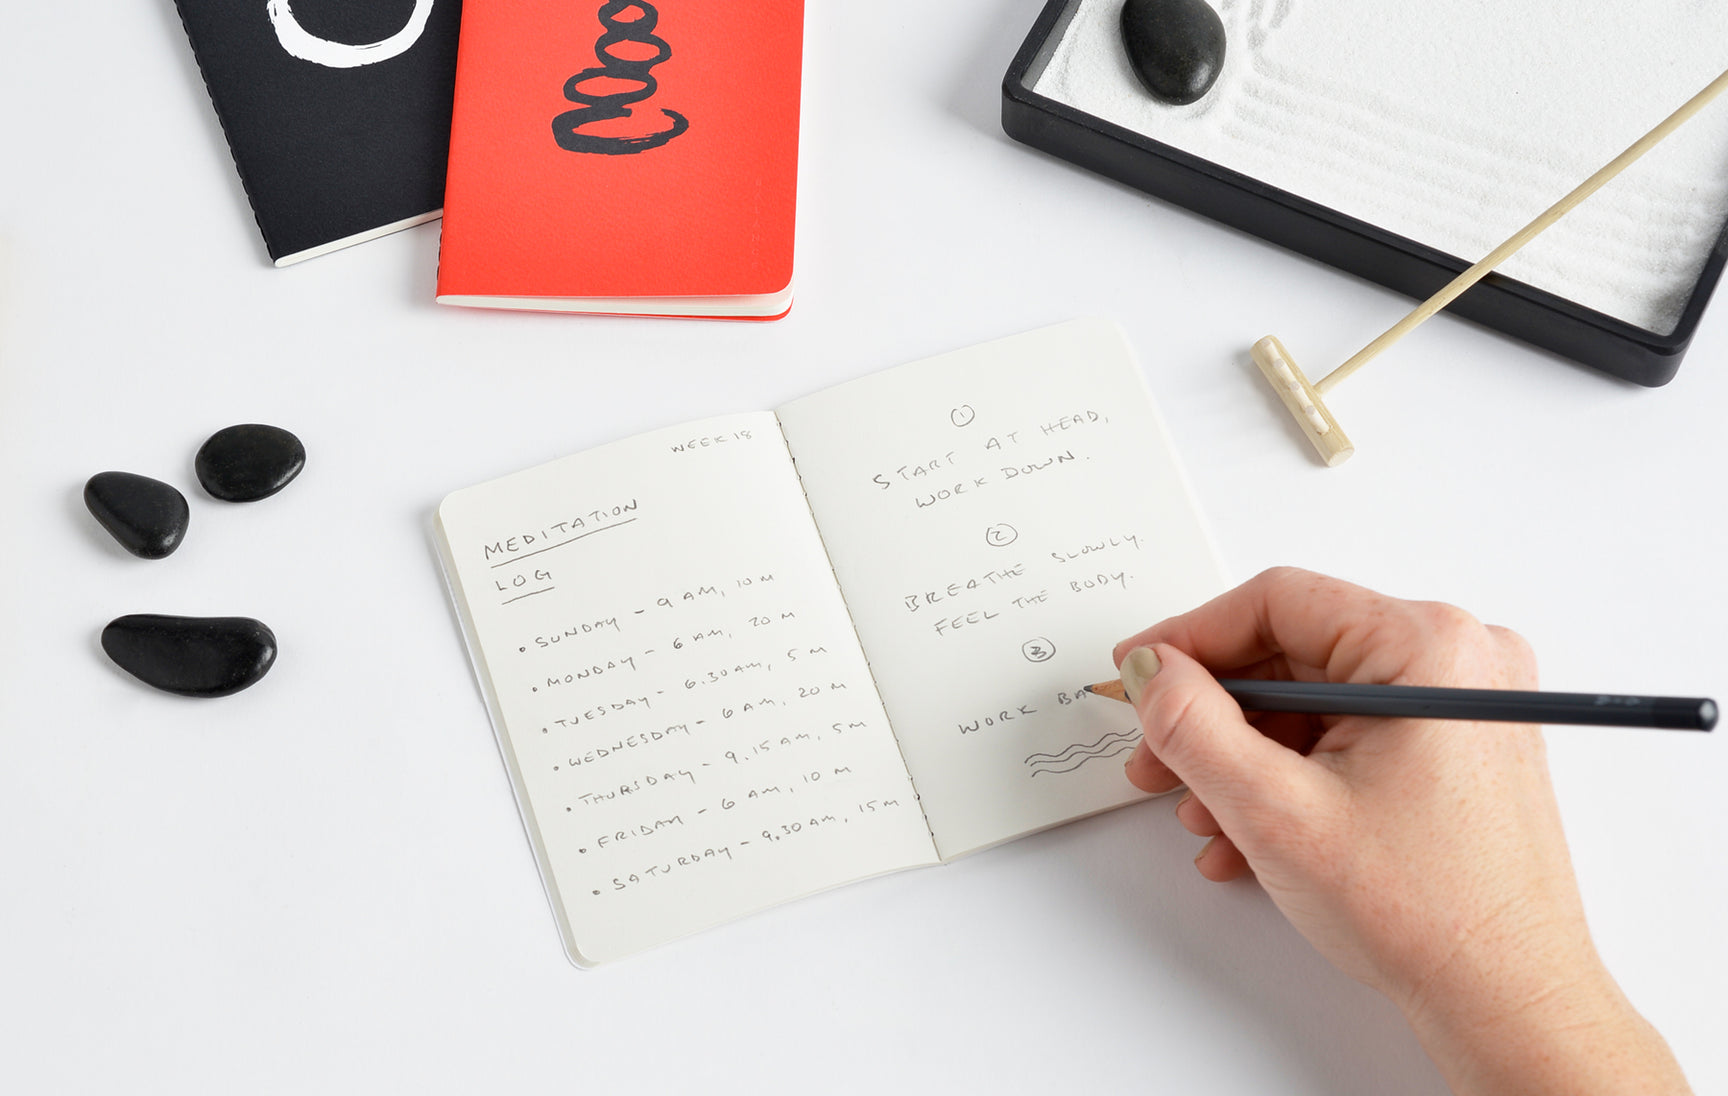 WEEK 18
MEDITATION
LOG
• SUNDAY – 9 AM, 10 M
• MONDAY – 6 AM, 20 M
• TUESDAY – 6.30 AM, 5 M
• WEDNESDAY – 6 AM, 20 M
• THURSDAY – 9.15 AM, 5 M
• FRIDAY – 6 AM, 10 M
• SATURDAY – 9.30 AM, 15 M
1
START AT HEAD,
WORK DOWN.
2
BREATHE SLOWLY.
FEEL THE BODY.
3
WORK BA